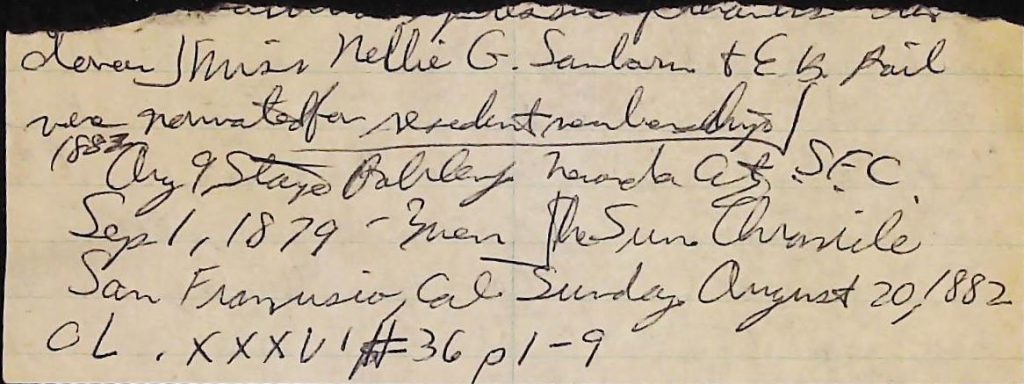 Miss Nellie G. Sanborn & E B. Rail
were nominated for resident membership
1882
Aug 9 Stage Nevada City S.F.C.
Sep 1, 1879 - 3 men The Sun. Chronicle
San Francisco, Cal. Sunday August 20, 1882
OL. XXXVI #36 p1-9